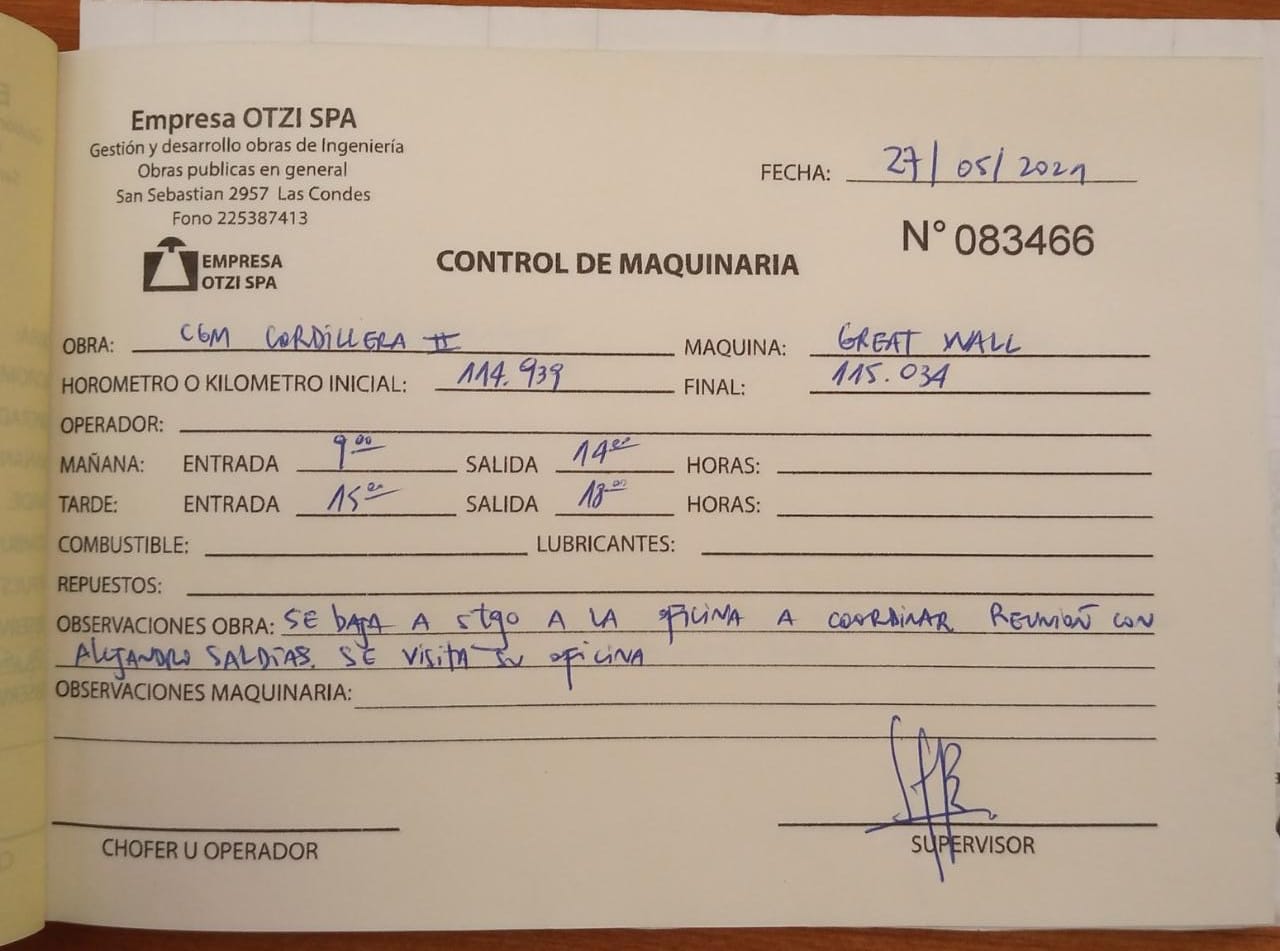 Empresa OTZI SPA
Gestión y desarrollo obras de Ingeniería
Obras publicas en general
San Sebastian 2957 Las Condes
Fono 225387413
EMPRESA
OTZI SPA
FECHA: 27/05/2021
N° 083466
CONTROL DE MAQUINARIA
OBRA: CGM CORDILLERA II MAQUINA: GREAT WALL
HOROMETRO O KILOMETRO INICIAL: 114.939 FINAL: 115.034
OPERADOR:
MAÑANA: ENTRADA 900 SALIDA 1400 HORAS:
TARDE: ENTRADA 1500 SALIDA 1800 HORAS:
COMBUSTIBLE: LUBRICANTES:
REPUESTOS:
OBSERVACIONES OBRA: SE BAJA A STGO A LA OFICINA A COORDINAR REUNIÓN CON
ALEJANDRO SALDIAS. SE VISITA SU OFICINA
OBSERVACIONES MAQUINARIA:
CHOFER U OPERADOR
SUPERVISOR